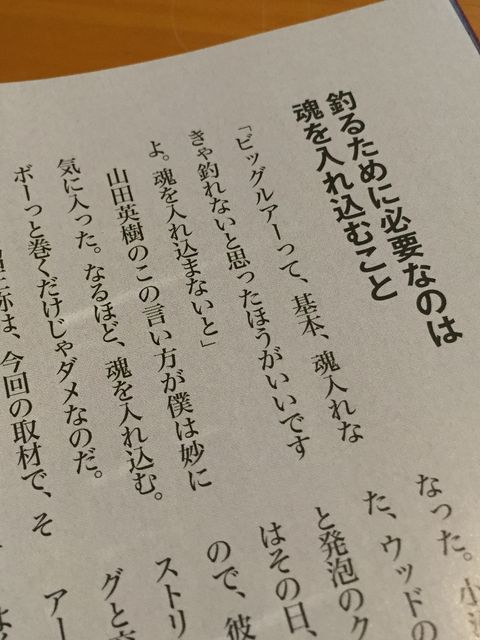 釣るために必要なのは
魂を入れ込むこと
「ビッグルアーって、基本、魂入れな
きゃ釣れないと思ったほうがいいです
よ。魂を入れ込まないと」
山田英樹のこの言い方が僕は妙に
気に入った。なるほど、魂を入れ込む。
ボーっと巻くだけじゃダメなのだ。
は、今回の取材で、そ
なった。小
た、ウッドの
と発泡のク
はその日、
ので、彼
ストリ
グと
アー